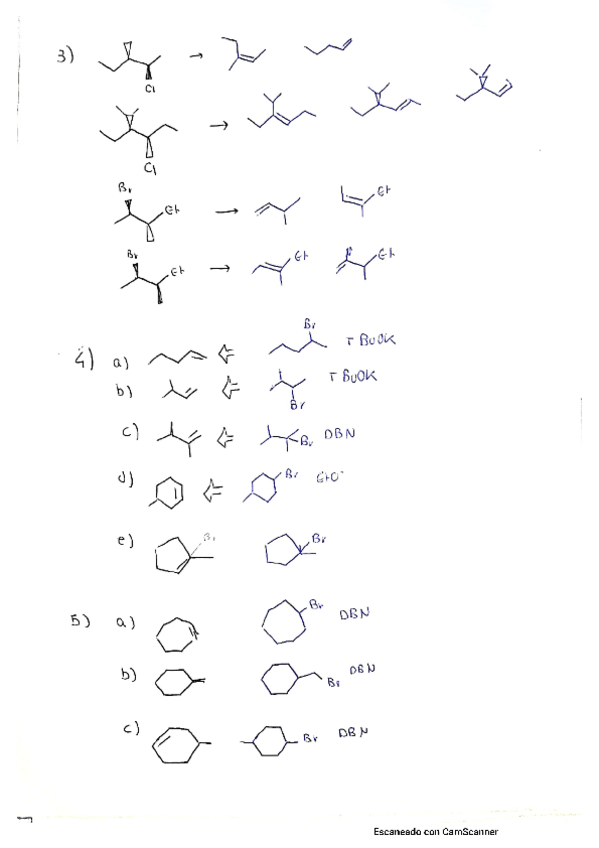 3)
Cl
Cl
Br
Et
Et
Br
Et
Et
Et
4) a)
Br
T BuOK
b)
Br
T BuOK
c)
Br DBN
d)
Br EtO⁻
e)
Br
Br
5) a)
Br DBN
b)
Br DBN
c)
Br DBN
Escaneado con CamScanner